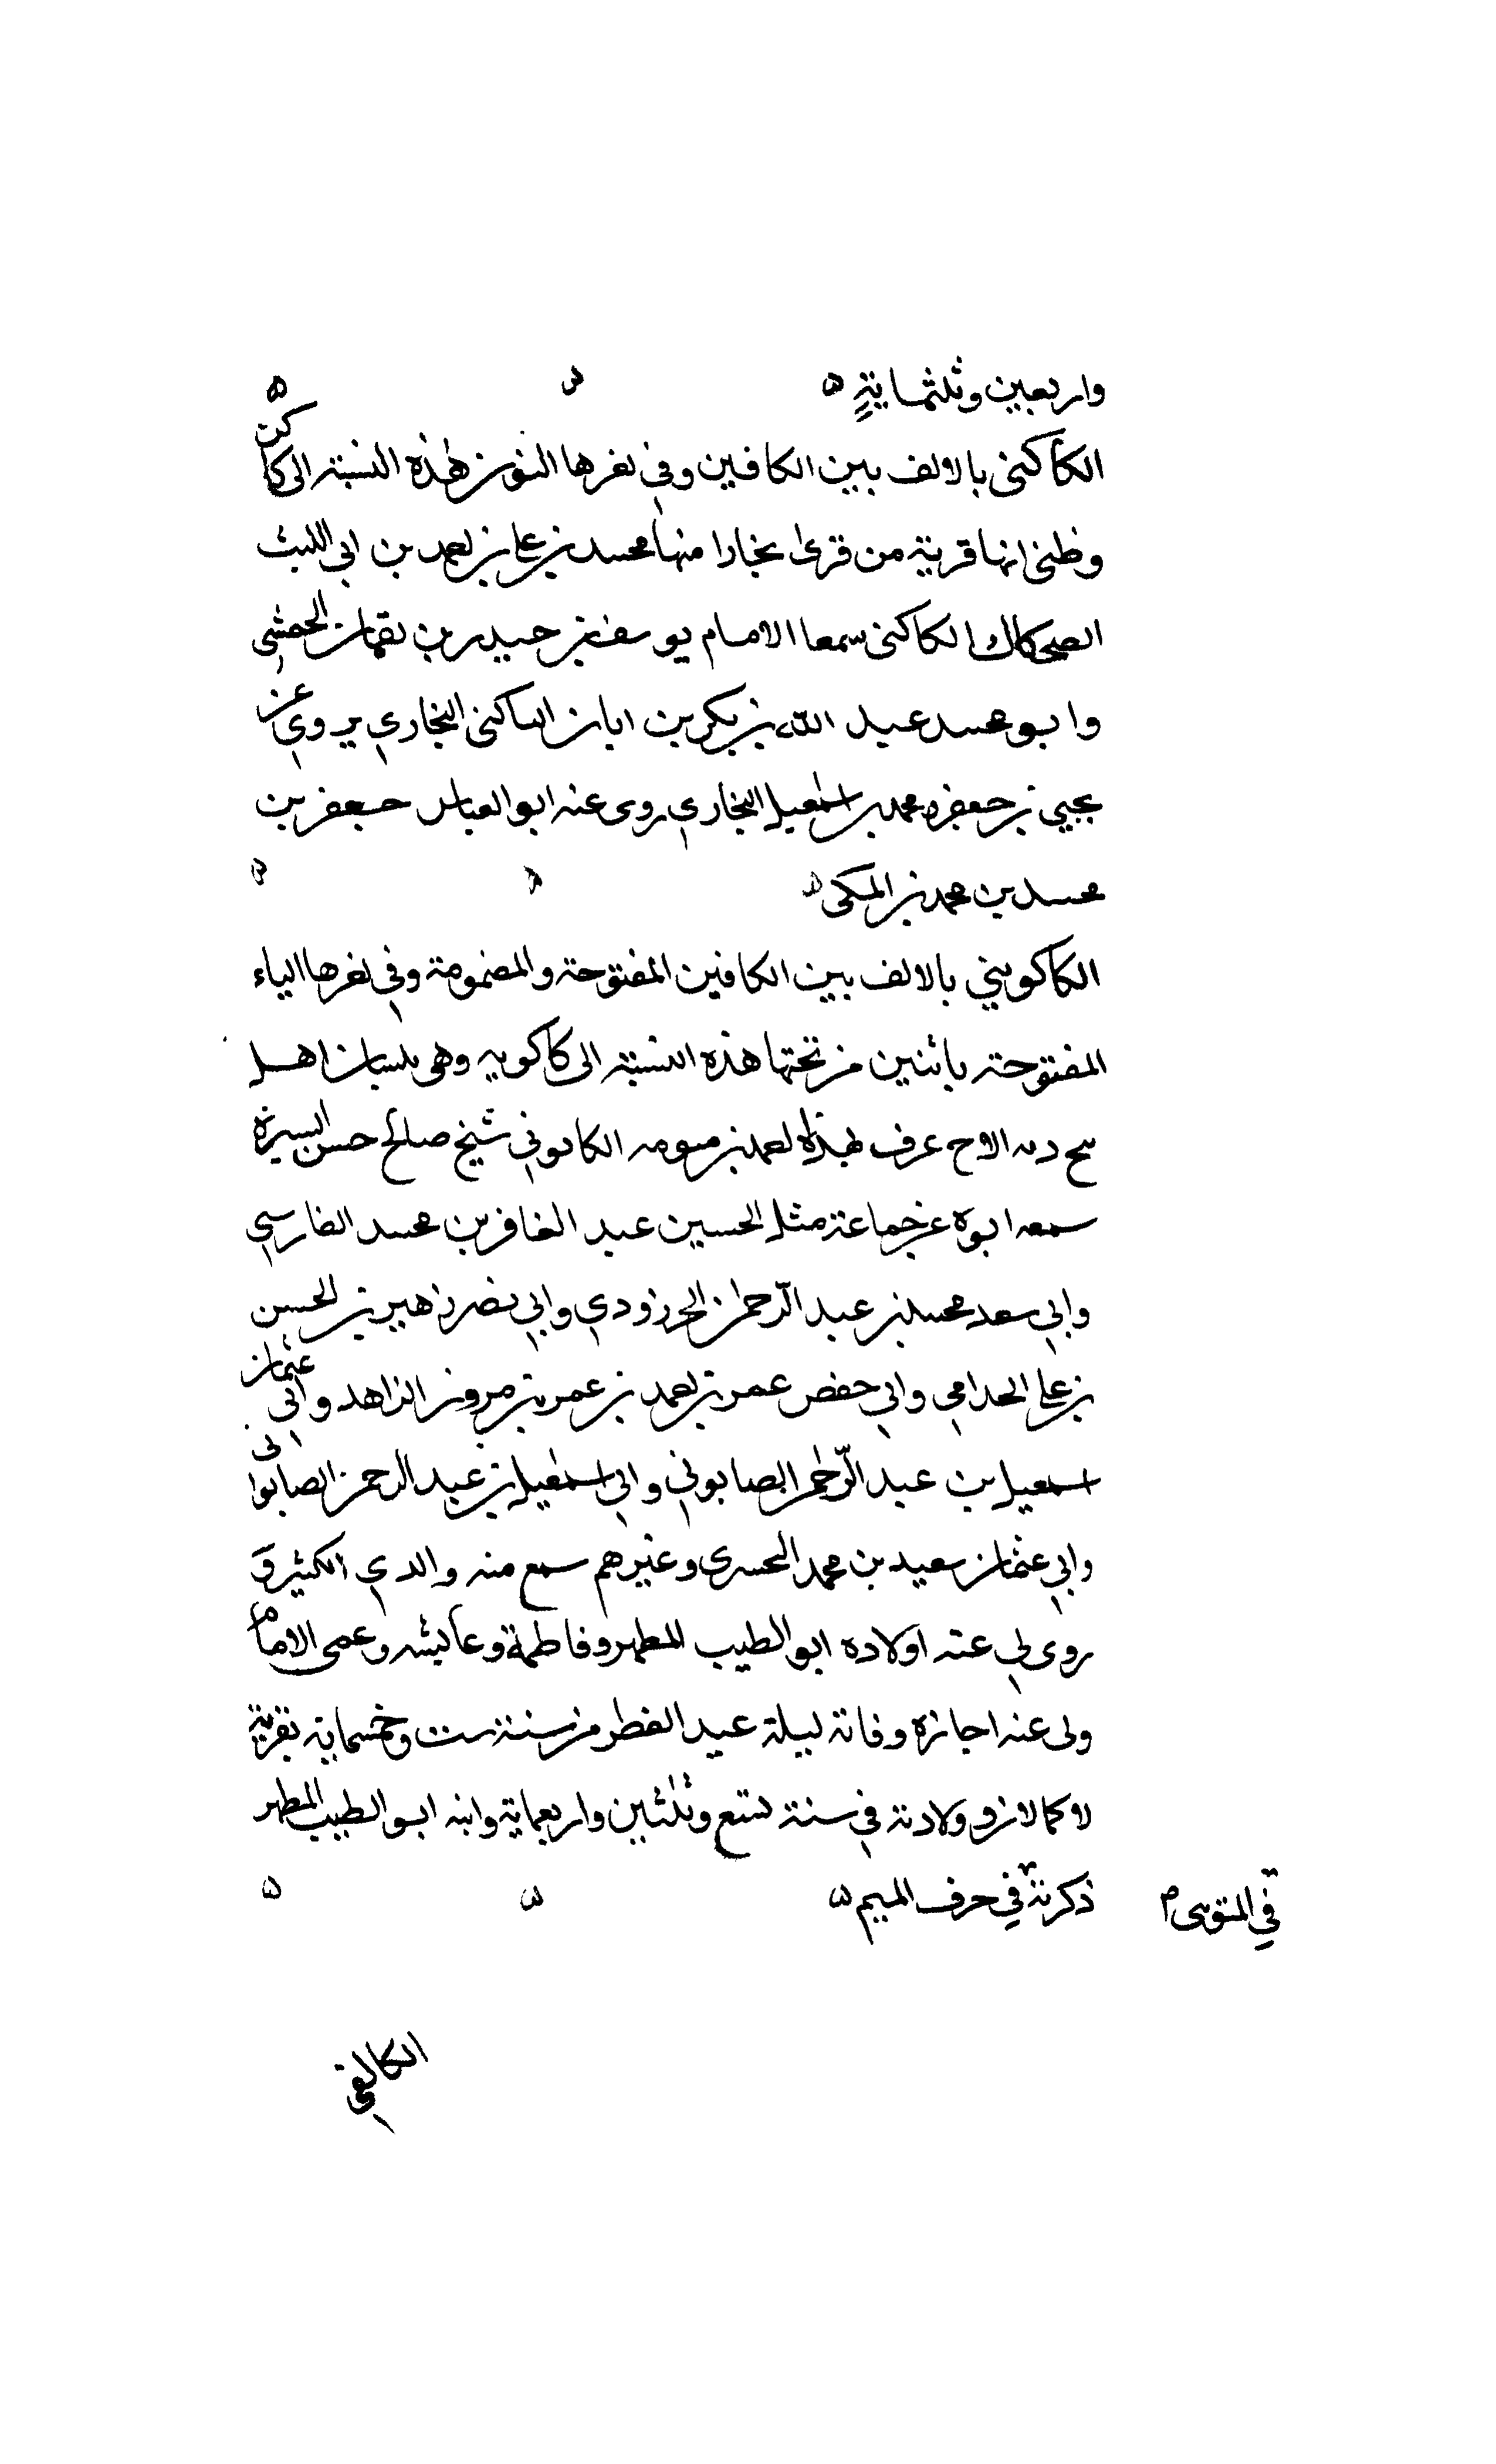 واربعين وثلثماية
الكاكنى بالالف بين الكافين وفي اخرها النون هذه النسبة الى كاكن
وظنى انها قرية من قرى بخارا منها محمد بن على بن احمد بن ابي الليث
الكاكنى سمعا الامام يوسف بن حيدر بن لقمان
وابو محمد عبد الله بن بكر بن ابان الكاكنى البخاري يروي عن
يحيي بن جعفر ومحمد بن اسمعيل البخاري روى عنه ابو العباس جعفر بن
محمد بن محمد بن المكى
الكاكويى بالالف بين الكافين المفتوحة والمضمومة وفي اخرها الياء
المفتوحة باثنين من تحتها هذه النسبة الى كاكويه وهى بلسان اهل
عرف بهذا احمد بن شيخ صالح حسن السيرة
سمعه ابوه عن جماعة مثل الحسين عبد الغافر بن محمد الفارسي
وابي سعد محمد بن عبد الرحمن وابي نصر زهير بن الحسن
بن على وابي حفص عمر بن احمد بن عمر بن الزاهد وابى عثمان
اسمعيل بن عبد الرحمن الصابوني وابي اسمعيل بن عبد الرحمن الصابونى
وابي عثمان سعيد بن محمد وغيرهم سمع منه والدي الكثير و
روى لي عنه اولاده ابو الطيب المطهر وفاطمة وعايشه وعمى الامام
ولى عنه اجازة وفاته ليلة عيد الفطر من سنة ست وخمسماية بقرية
ولادته في سنة تسع وثلثين واربعماية وابنه ابو الطيب المطهر
ذكرته في حرف الميم
في